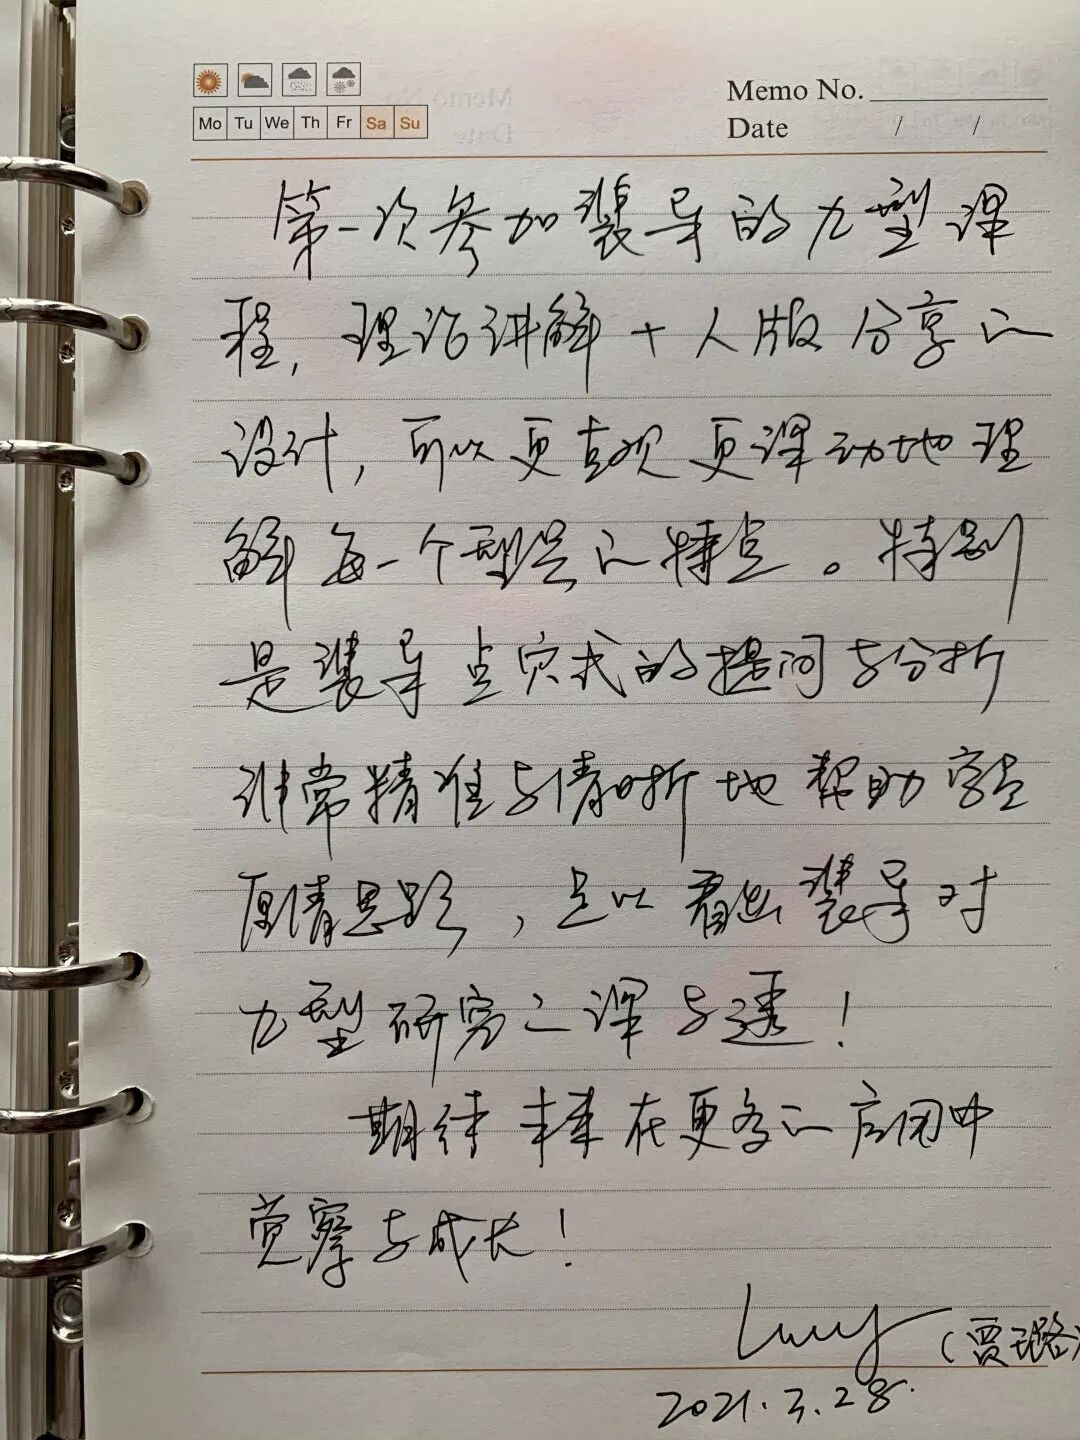 Memo No.
Mo Tu We Th Fr Sa Su
Date / /
第一次参加裴导的九型课
程，理论讲解+人版分享的
设计，可以更直观更深动地理
解每一个型号的特点。特别
是裴导点穴式的提问与分析
非常精准与清晰地帮助学员
厘清思路，足以看出裴导对
九型研究之深与透！
期待未来在更多的应用中
觉察与成长！
Lucy（贾璐）
2021.3.28.